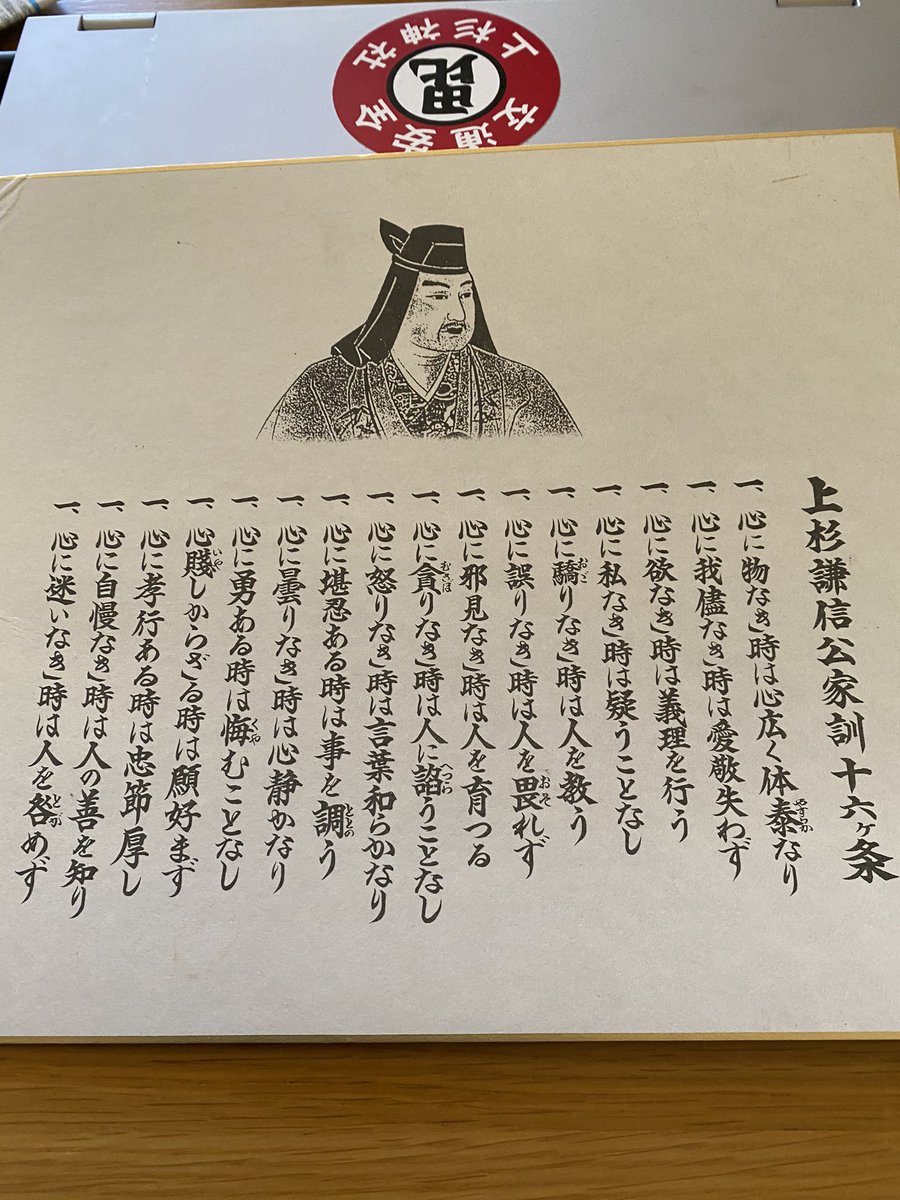 上杉神社
毘
交通安全
上杉謙信公家訓十六ヶ条
一、心に物なき時は心広く体泰なり
やすらか
一、心に我儘なき時は愛敬失わず
一、心に欲なき時は義理を行う
一、心に私なき時は疑うことなし
一、心に驕りなき時は人を教う
おご
一、心に誤りなき時は人を畏れず
おそ
一、心に邪見なき時は人を育つる
一、心に貪りなき時は人に諂うことなし
むさぼ
へつら
一、心に怒りなき時は言葉和らかなり
一、心に堪忍ある時は事を調う
ととの
一、心に曇りなき時は心静かなり
一、心に勇ある時は悔むことなし
くや
一、心賤しからざる時は願好まず
いや
一、心に孝行ある時は忠節厚し
一、心に自慢なき時は人の善を知り
一、心に迷いなき時は人を咎めず
とが